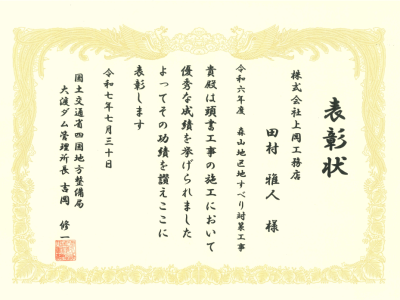 表彰状
株式会社上岡工務店
田村 雅人 様
令和六年度 森山地区地すべり対策工事
貴殿は頭書工事の施工において
優秀な成績を挙げられました
よってその功績を讃えここに
表彰します
令和七年七月三十日
国土交通省四国地方整備局
大渡ダム管理所長 吉岡 修一